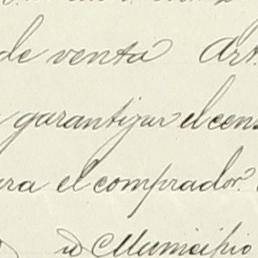 de venta Art.
garantizar el cens
ra el comprador.
id Municipio